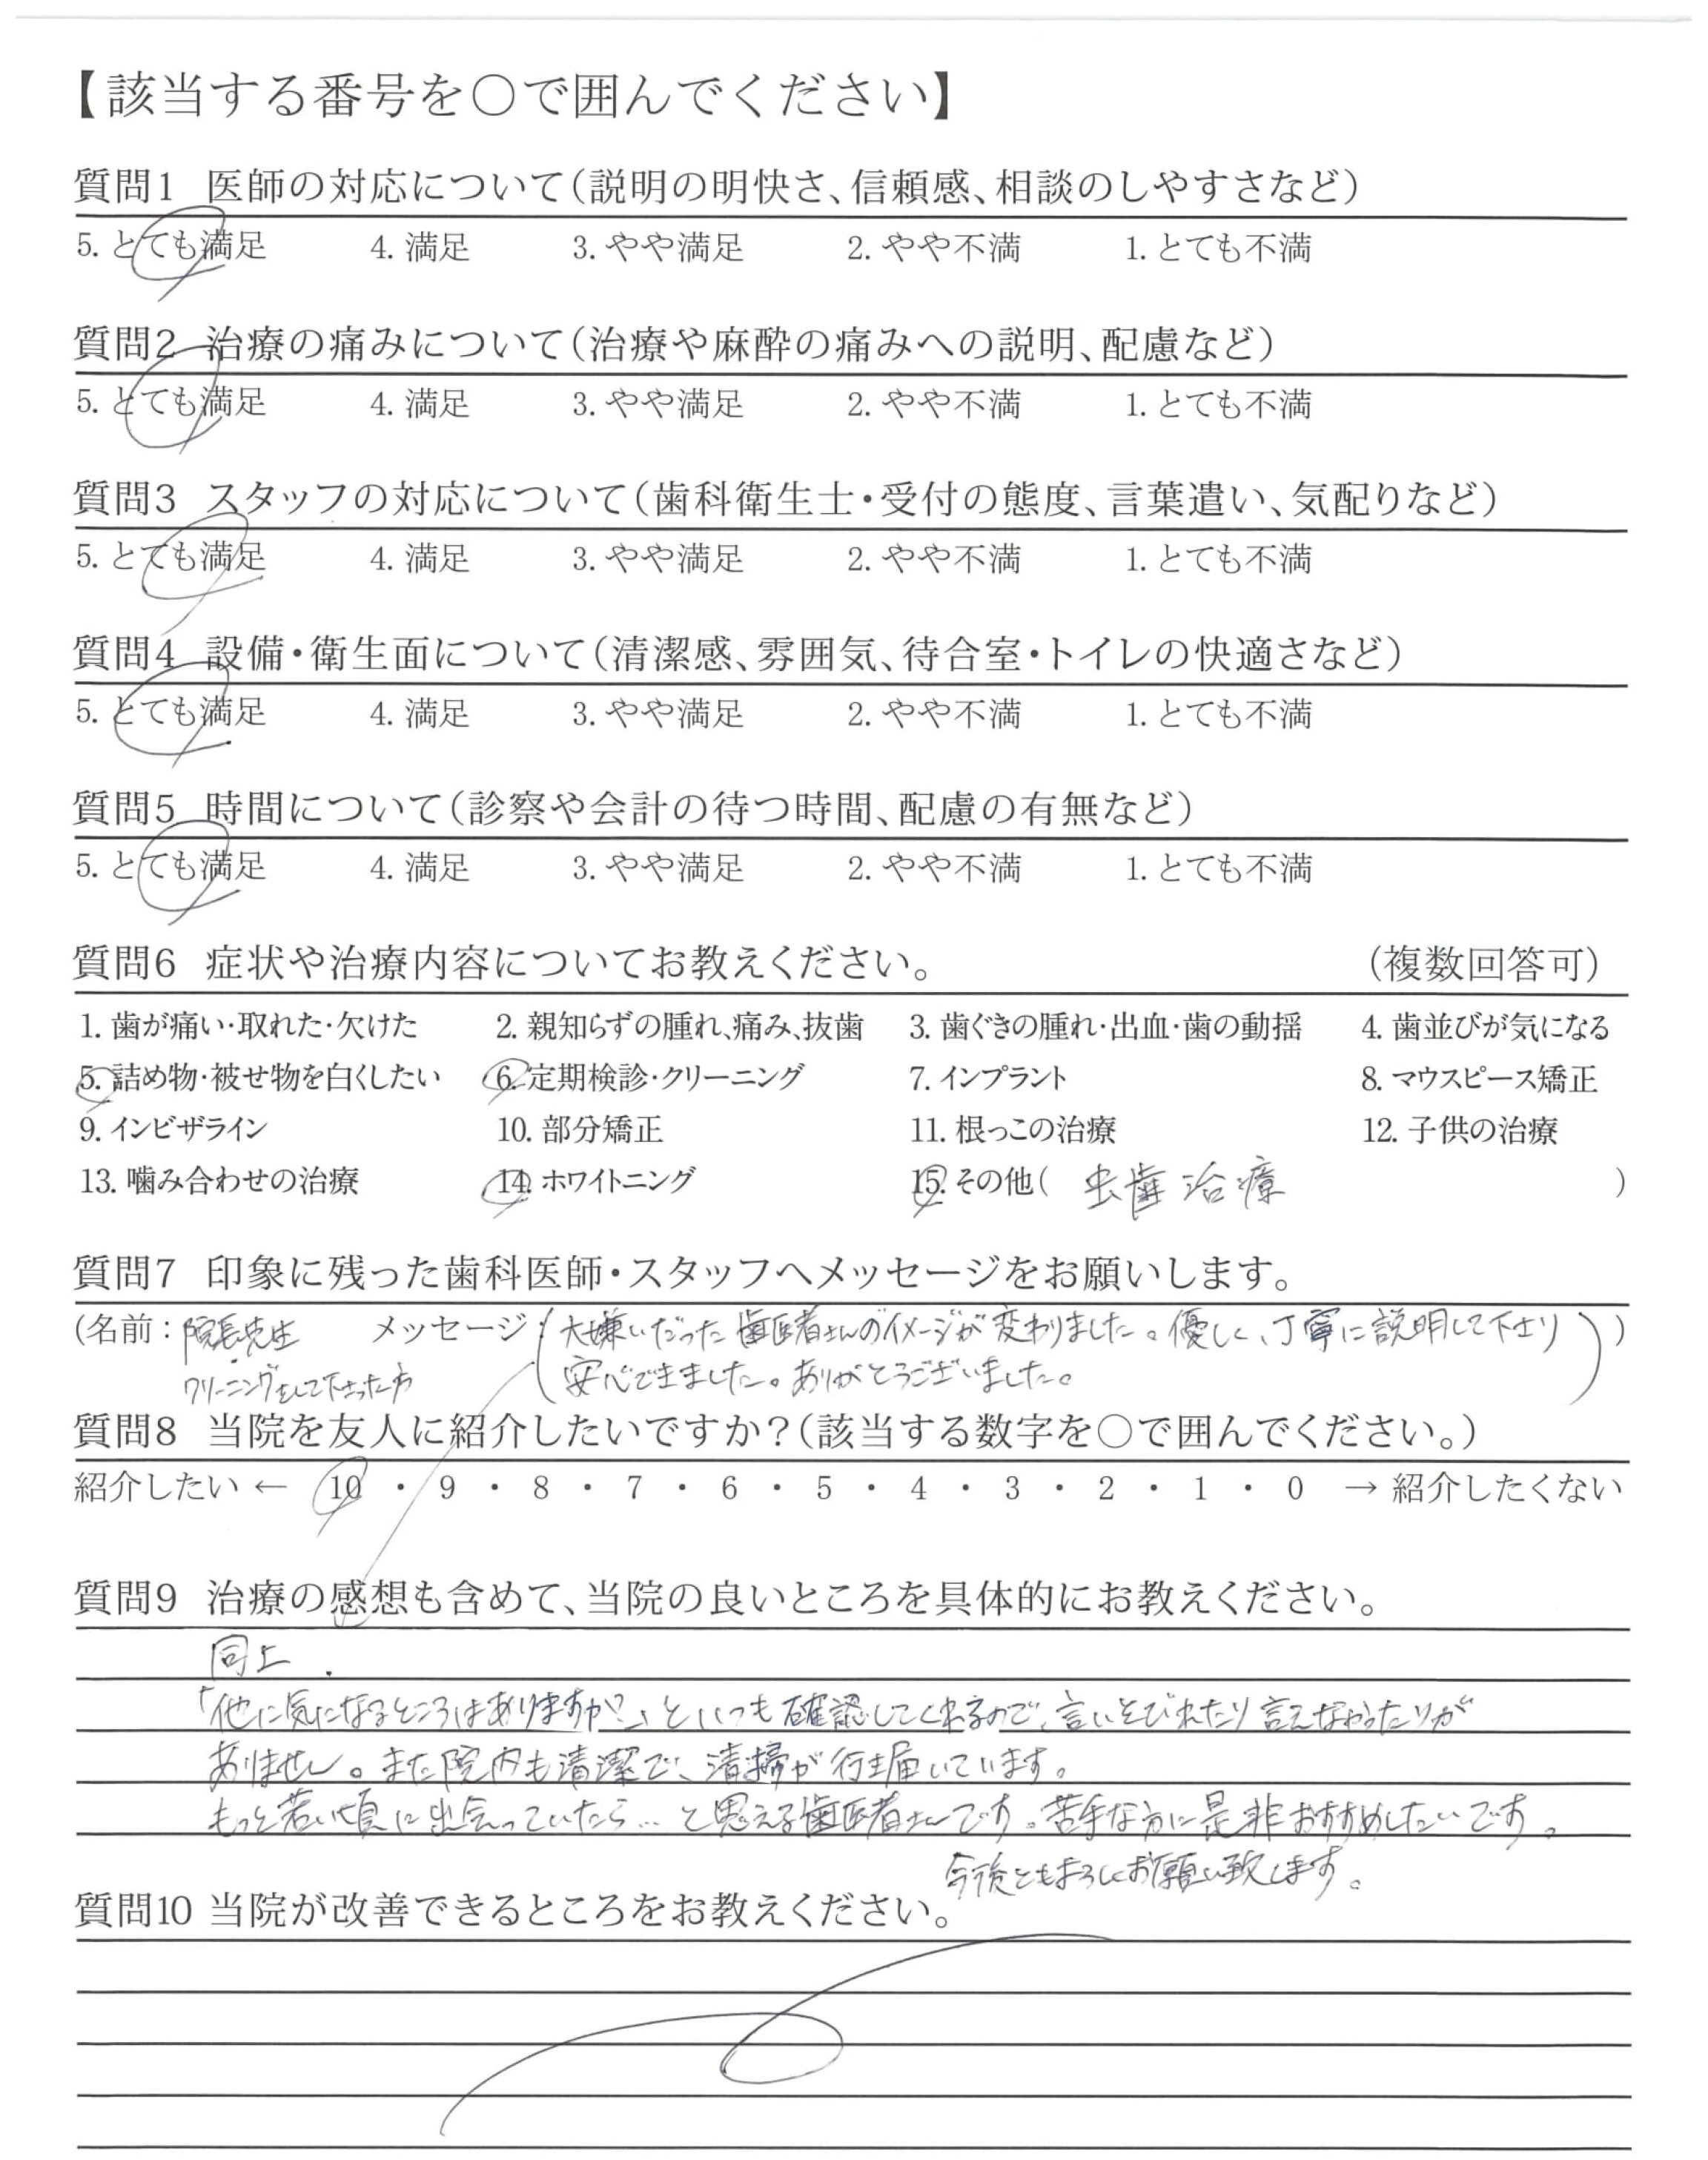 【該当する番号を○で囲んでください】
質問1 医師の対応について（説明の明快さ、信頼感、相談のしやすさなど）
5. とても満足 4. 満足 3. やや満足 2. やや不満 1. とても不満
質問2 治療の痛みについて（治療や麻酔の痛みへの説明、配慮など）
5. とても満足 4. 満足 3. やや満足 2. やや不満 1. とても不満
質問3 スタッフの対応について（歯科衛生士・受付の態度、言葉遣い、気配りなど）
5. とても満足 4. 満足 3. やや満足 2. やや不満 1. とても不満
質問4 設備・衛生面について（清潔感、雰囲気、待合室・トイレの快適さなど）
5. とても満足 4. 満足 3. やや満足 2. やや不満 1. とても不満
質問5 時間について（診察や会計の待つ時間、配慮の有無など）
5. とても満足 4. 満足 3. やや満足 2. やや不満 1. とても不満
質問6 症状や治療内容についてお教えください。 （複数回答可）
1. 歯が痛い・取れた・欠けた 2. 親知らずの腫れ、痛み、抜歯 3. 歯ぐきの腫れ・出血・歯の動揺 4. 歯並びが気になる
5. 詰め物・被せ物を白くしたい 6. 定期検診・クリーニング 7. インプラント 8. マウスピース矯正
9. インビザライン 10. 部分矯正 11. 根っこの治療 12. 子供の治療
13. 噛み合わせの治療 14. ホワイトニング 15. その他（ 虫歯治療 ）
質問7 印象に残った歯科医師・スタッフへメッセージをお願いします。
（名前：院長先生 メッセージ：大嫌いだった歯医者さんのイメージが変わりました。優しく、丁寧に説明して下さり）
クリーニングをして下さった方 安心できました。ありがとうございました。
質問8 当院を友人に紹介したいですか？（該当する数字を○で囲んでください。）
紹介したい ← 10 ・ 9 ・ 8 ・ 7 ・ 6 ・ 5 ・ 4 ・ 3 ・ 2 ・ 1 ・ 0 → 紹介したくない
質問9 治療の感想も含めて、当院の良いところを具体的にお教えください。
同上.
「他に気になるところはありますか？」といつも確認してくれるので、言いそびれたり言えなかったりが
ありません。また院内も清潔で、清掃が行き届いています。
もっと若い頃に出会っていたら…と思える歯医者さんです。苦手な方に是非おすすめしたいです。
今後ともよろしくお願い致します。
質問10 当院が改善できるところをお教えください。